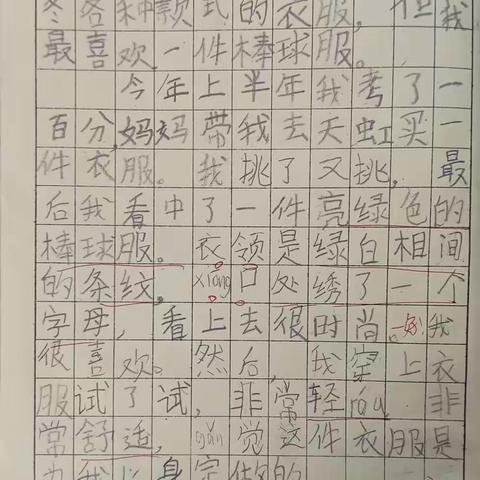 冬各种款式的衣服,但我
最喜欢一件棒球服。
今年上半年我考了一
百分,妈妈带我去天虹买一
件衣服。我挑了又挑,最
后我看中了一件亮绿色的
棒球服。衣领是绿白相间
的条纹。xiōng口处绣了一个
字母,看上去很时尚。好!我
很喜欢。然后,我穿上衣
服试了试,非常轻róu,非
常舒适,gǎn觉这件衣服是
为我 身定做的